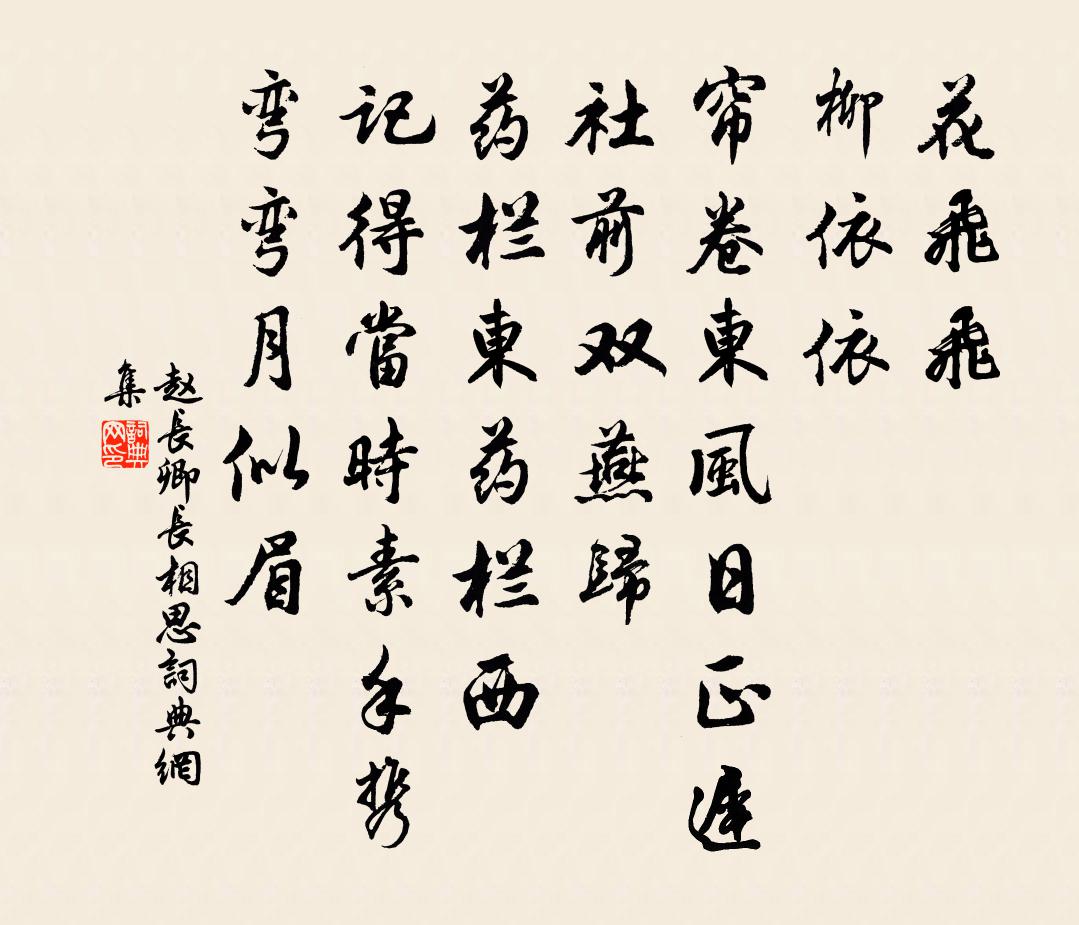 花飛飛
柳依依
帘卷東風日正遲
社前双燕歸
药栏東药栏西
記得當時素手携
弯弯月似眉
赵長卿長相思詞典網
集
詞典
网印